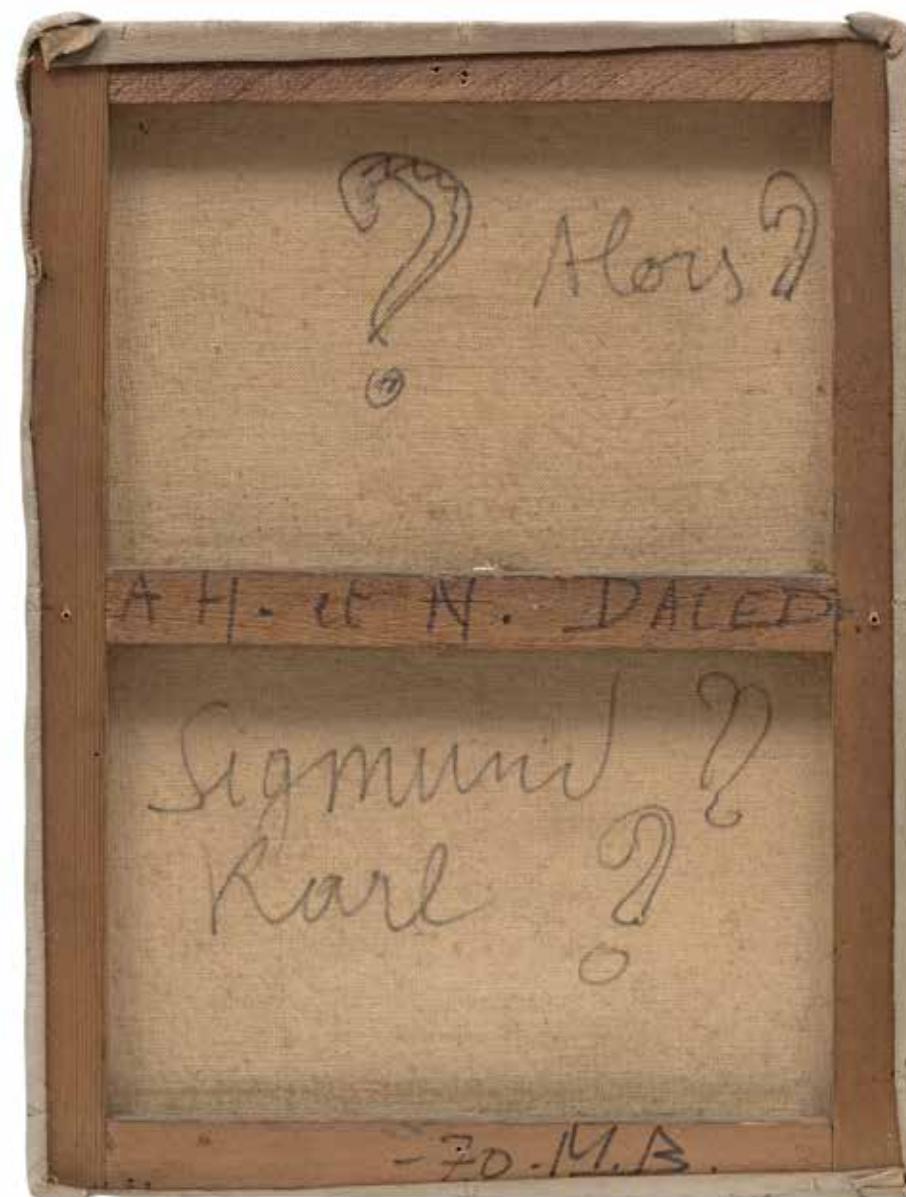 ? Alors?
A H. et N. DALED.
Sigmund ?
Karl ?
-70-M.B.